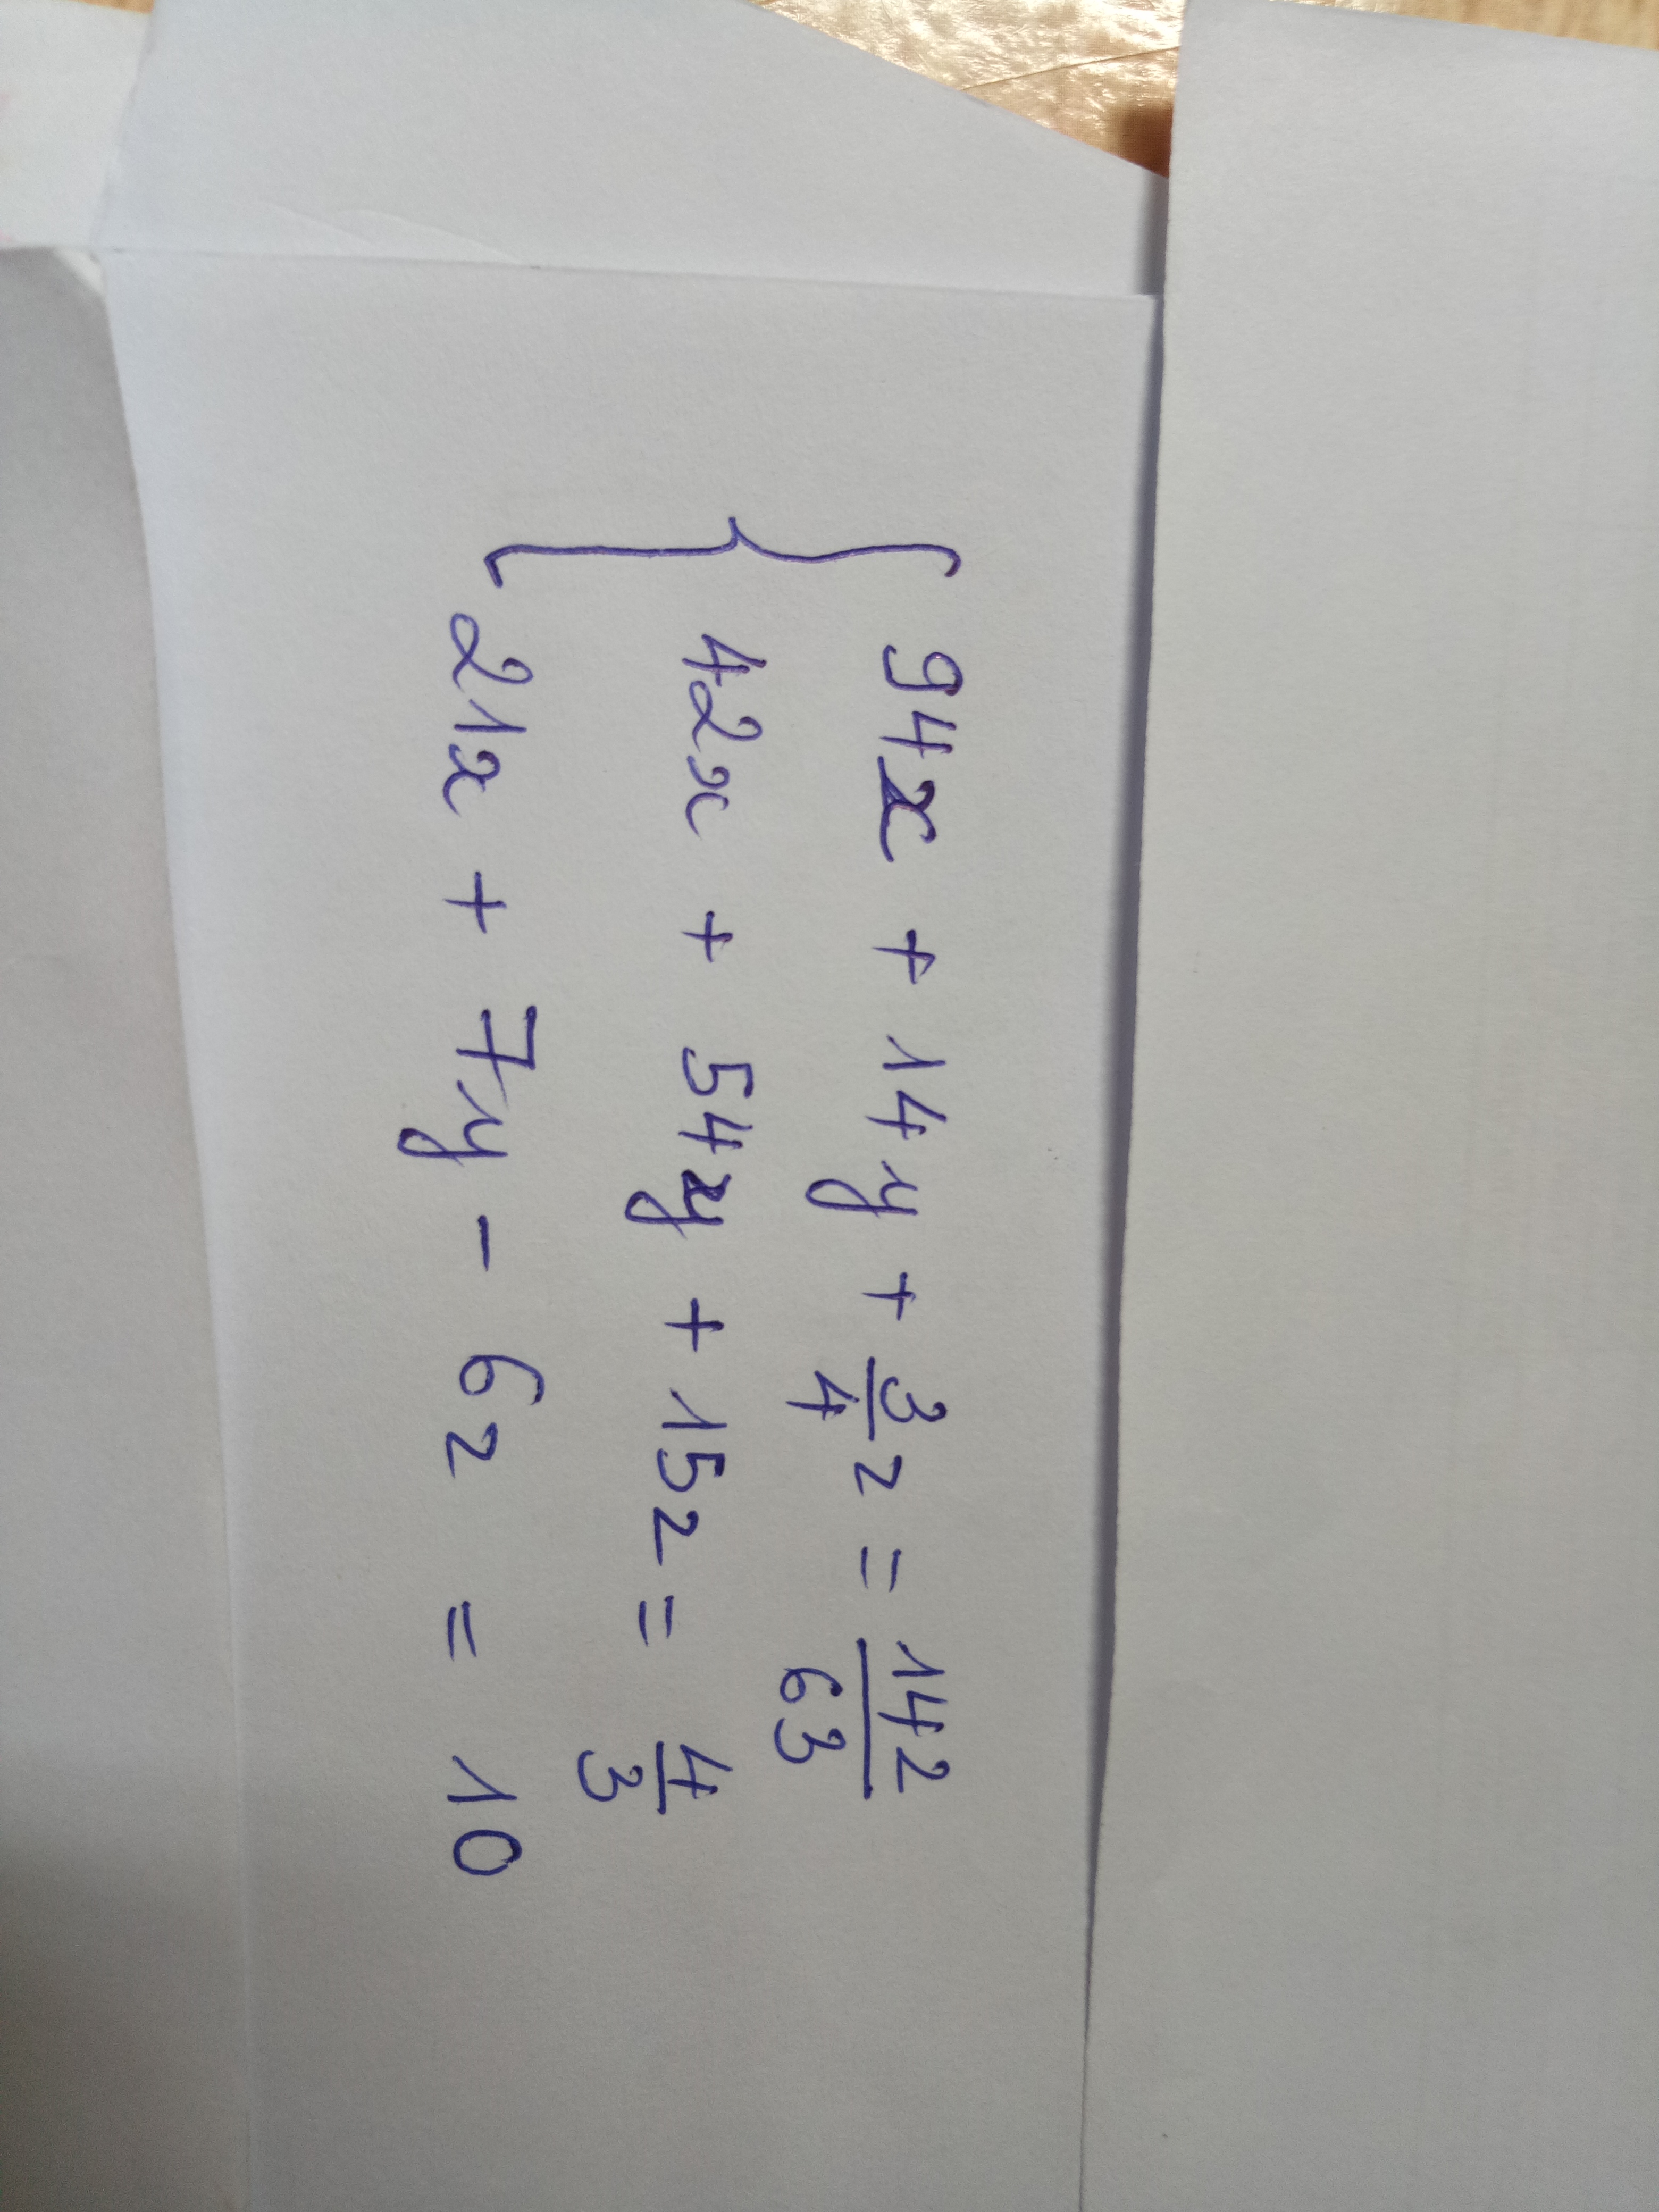 94x + 14y + 3/4 z = 142/63
42x + 54y + 15z = 4/3
21x + 7y - 6z = 10